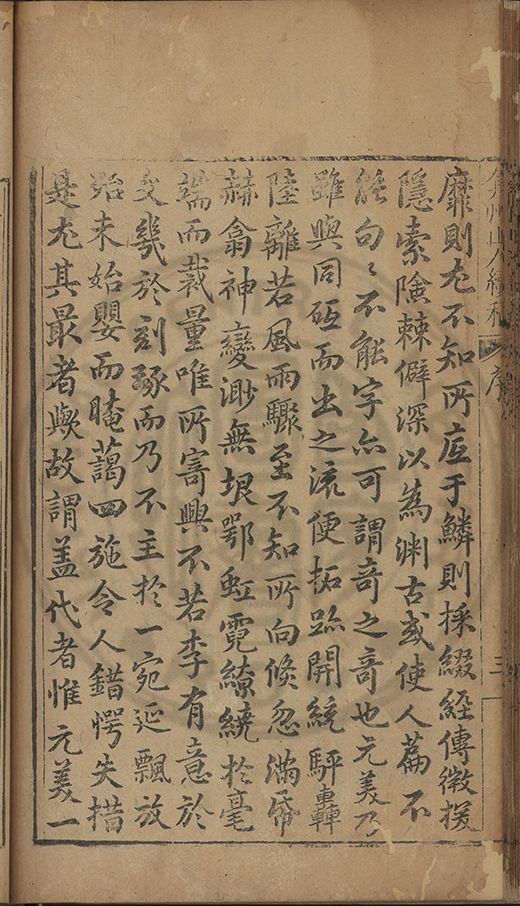 弇州山人續稿 序 三
靡則尤不知所底于鱗則採綴經傳徵援
隱索險棘僻深以為渊古或使人篇不
能句〻不能字亦可謂奇之奇也元美乃
雖與同砥而出之流便拓跡開統駍轟
陸離若風雨驟至不知所向倏忽滿帋
赫翕神變渺無垠鄂虹霓繚繞於毫
端而裁量唯所寄興不若李有意於
文幾於刻琢而乃不主於一宛延飄放
殆未始嬰而晻藹四施令人錯愕失措
是尤其最者歟故謂盖代者惟元美一